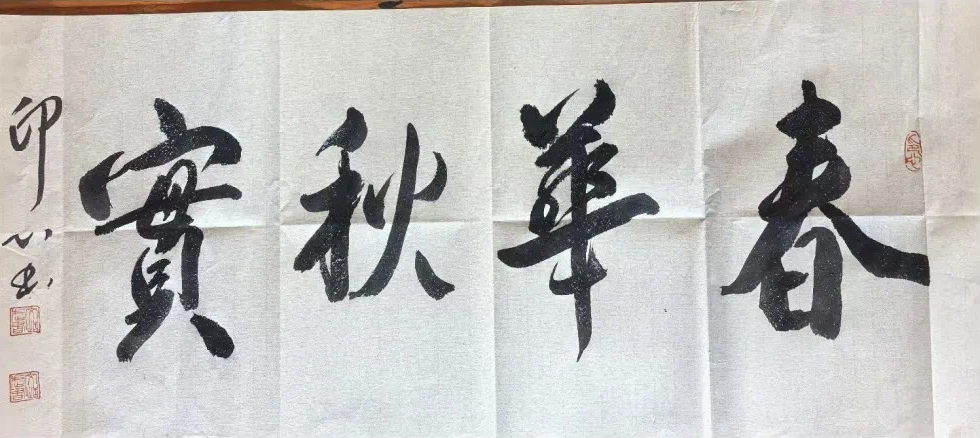 春華秋實
印心书